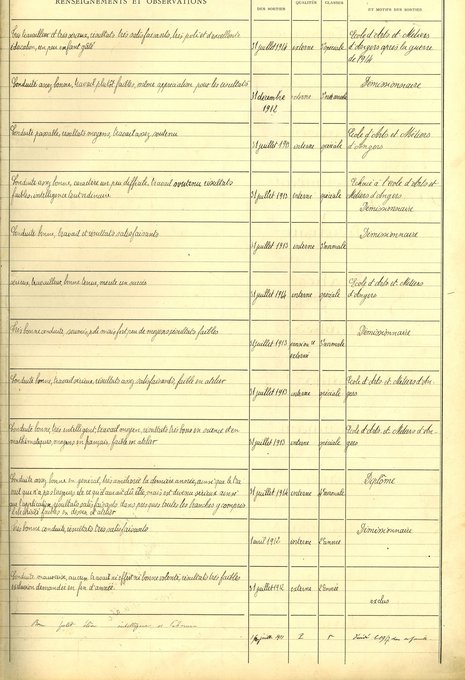 RENSEIGNEMENTS ET OBSERVATIONS
DES SORTIES
QUALITÉS
CLASSES
ET MOTIFS DES SORTIES
Très travailleur et très sérieux, résultats très satisfaisants, très poli et d'excellente
éducation, un peu enfant gâté
31 juillet 1914 externe normale
Ecole d'Arts et Métiers
d'Angers après la guerre
de 1914
Conduite assez bonne, travail plutôt faible, même appréciation pour les résultats
31 décembre
1912
externe
Démissionnaire
Conduite passable, résultats moyens, travail assez soutenu
31 juillet interne spéciale
Ecole d'Arts et Métiers
d'Angers
Conduite assez bonne, caractère un peu difficile, travail soutenu résultats
faibles, intelligence
31 juillet 1913 interne spéciale
à l'école d'Arts et
Métiers d'Angers
Démissionnaire
Conduite bonne, travail et résultats satisfaisants
31 juillet 1913 externe normale
Démissionnaire
sérieux, travailleur, bonne tenue, mérite un succès
31 juillet 1914 interne spéciale
Ecole d'Arts et Métiers
d'Angers
Très bonne conduite, poli mais fort peu de moyens résultats faibles
31 juillet 1913 normale
Démissionnaire
Conduite bonne, travail sérieux, résultats assez satisfaisants, faible en atelier
31 juillet 1913 interne spéciale
Ecole d'Arts et Métiers d'An-
gers
Conduite bonne, très intelligent, travail moyen, résultats très bons en science et en
mathématiques, moyens en français, faible en atelier
31 juillet 1913 interne spéciale
Ecole d'Arts et Métiers d'An-
gers
Conduite assez bonne en général, très amélioré la dernière année, ainsi que le tra-
vail qui n'a pas toujours été ce qu'il aurait dû être, mais est devenu sérieux ainsi
que l'application, résultats satisfaisants dans presque toutes les branches y compris
faibles en dessin et atelier
31 juillet 1914 interne normale
Diplômé
Très bonne conduite, résultats très satisfaisants
1 avril 1912 externe année
Démissionnaire
Conduite mauvaise, aucun travail ni effort ni bonne volonté, résultats très faibles
exclusion demandée en fin d'année
31 juillet 1912 externe année
exclus
Bon petit élève intelligent et
juillet